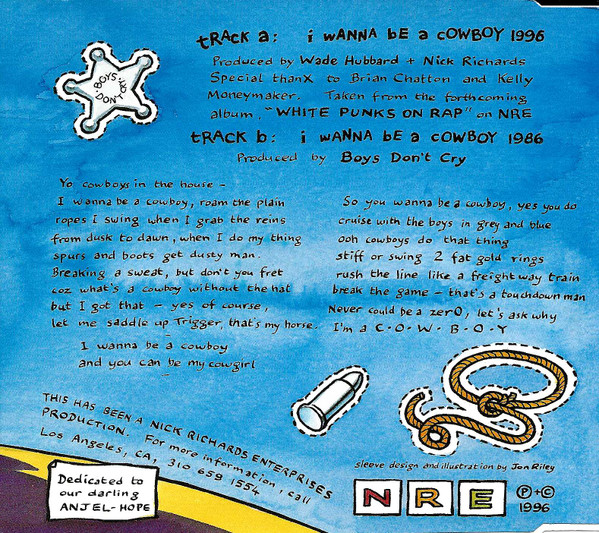 BOYS DON'T CRY
tRACK a: i WANNA bE a COWBOY 1996
Produced by Wade Hubbard + Nick Richards
Special thanX to Brian Chatton and Kelly
Moneymaker. Taken from the forthcoming
album, "WHITE PUNKS ON RAP" on NRE
tRACK b: i WANNA bE a COWBOY 1986
Produced by Boys Don't Cry
Yo, cowboys in the house -
I wanna be a cowboy, roam the plain
ropes I swing when I grab the reins
from dusk to dawn, when I do my thing
spurs and boots get dusty man.
Breaking a sweat, but don't you fret
coz what's a cowboy without the hat
but I got that - yes of course,
let me saddle up Trigger, that's my horse.
I wanna be a cowboy
and you can be my cowgirl
So you wanna be a cowboy, yes you do
cruise with the boys in grey and blue
ooh cowboys do that thing
stiff or swing 2 fat gold rings
rush the line like a freightway train
break the game - that's a touchdown man
Never could be a zerO, let's ask why
I'm a C·O·W·B·O·Y
THIS HAS BEEN A NICK RICHARDS ENTERPRISES
PRODUCTION. For more information, call
Los Angeles, CA, 310 659 1554
Dedicated to
our darling
ANJEL-HOPE
sleeve design and illustration by Jon Riley
NRE
℗+©
1996